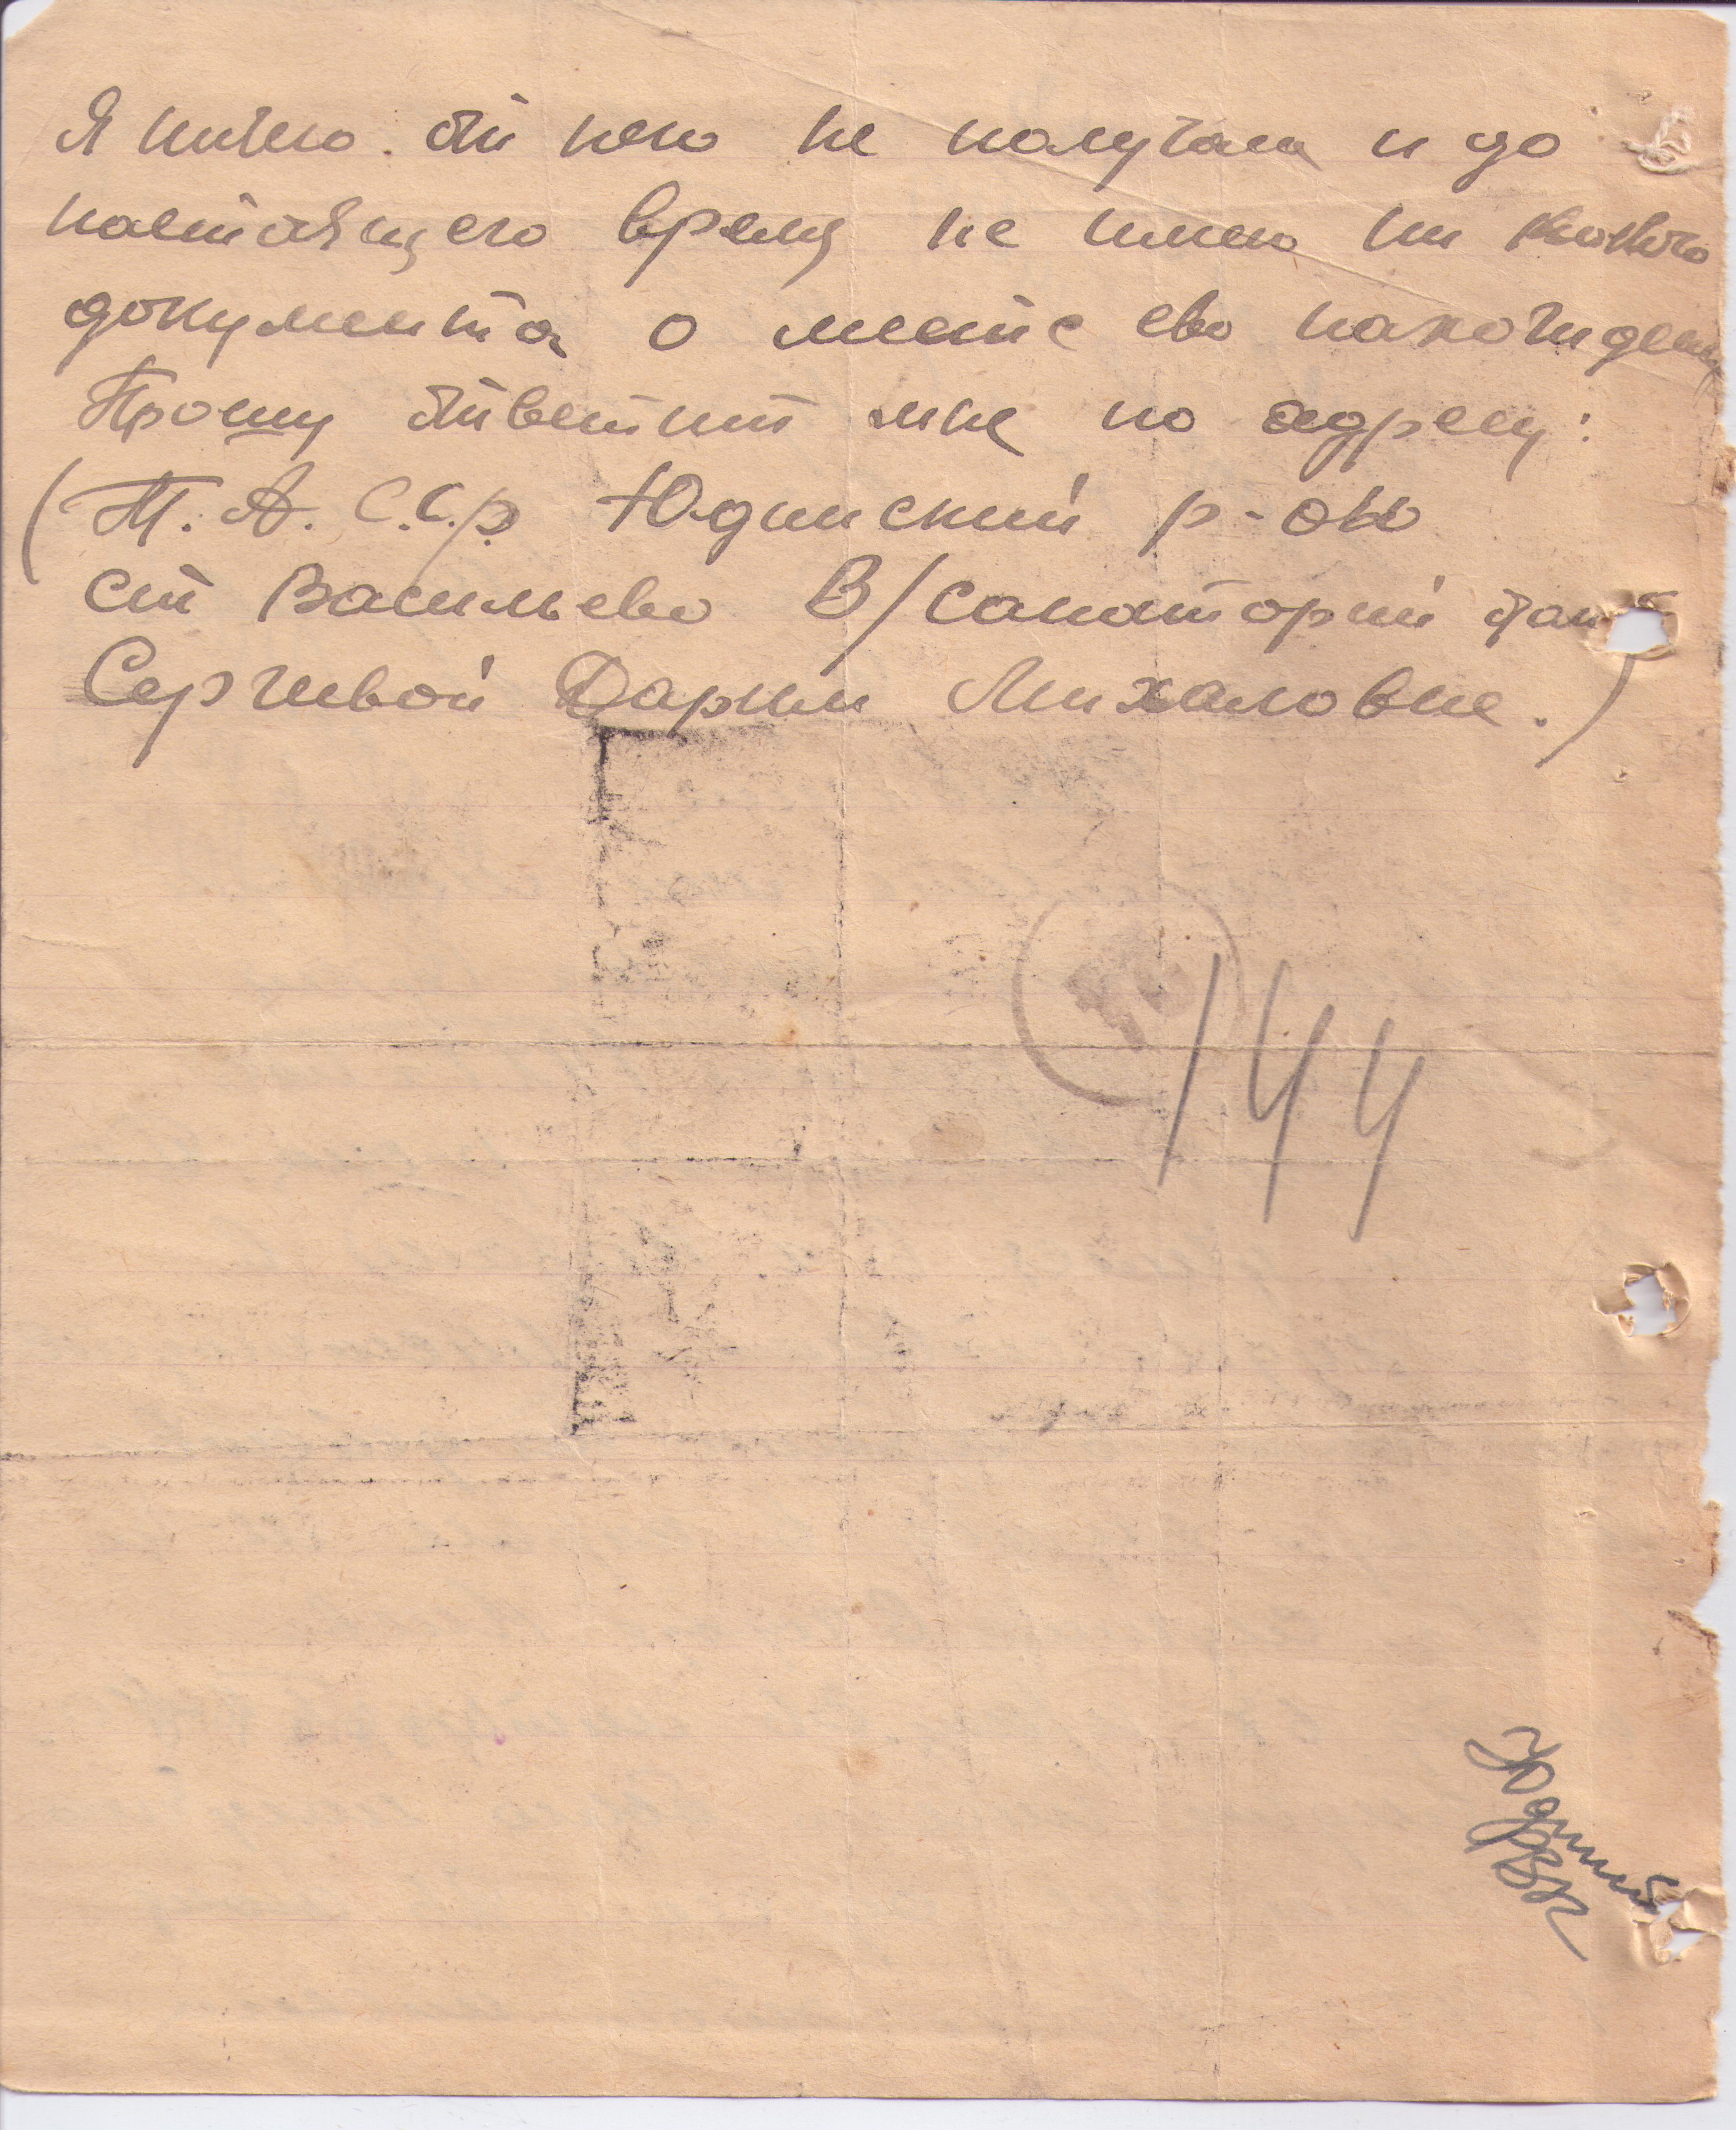 Я ничего от него не получала и до
настоящего время не имею ни какого
документа о месте ево нахождени
Прошу ответит мне по адресу:
(Т. А. С.С.р Юдинский р-он
ст Васильево В/санаторий
Сергивой Дарии Михаловне.)
144
Юдинский
РВК